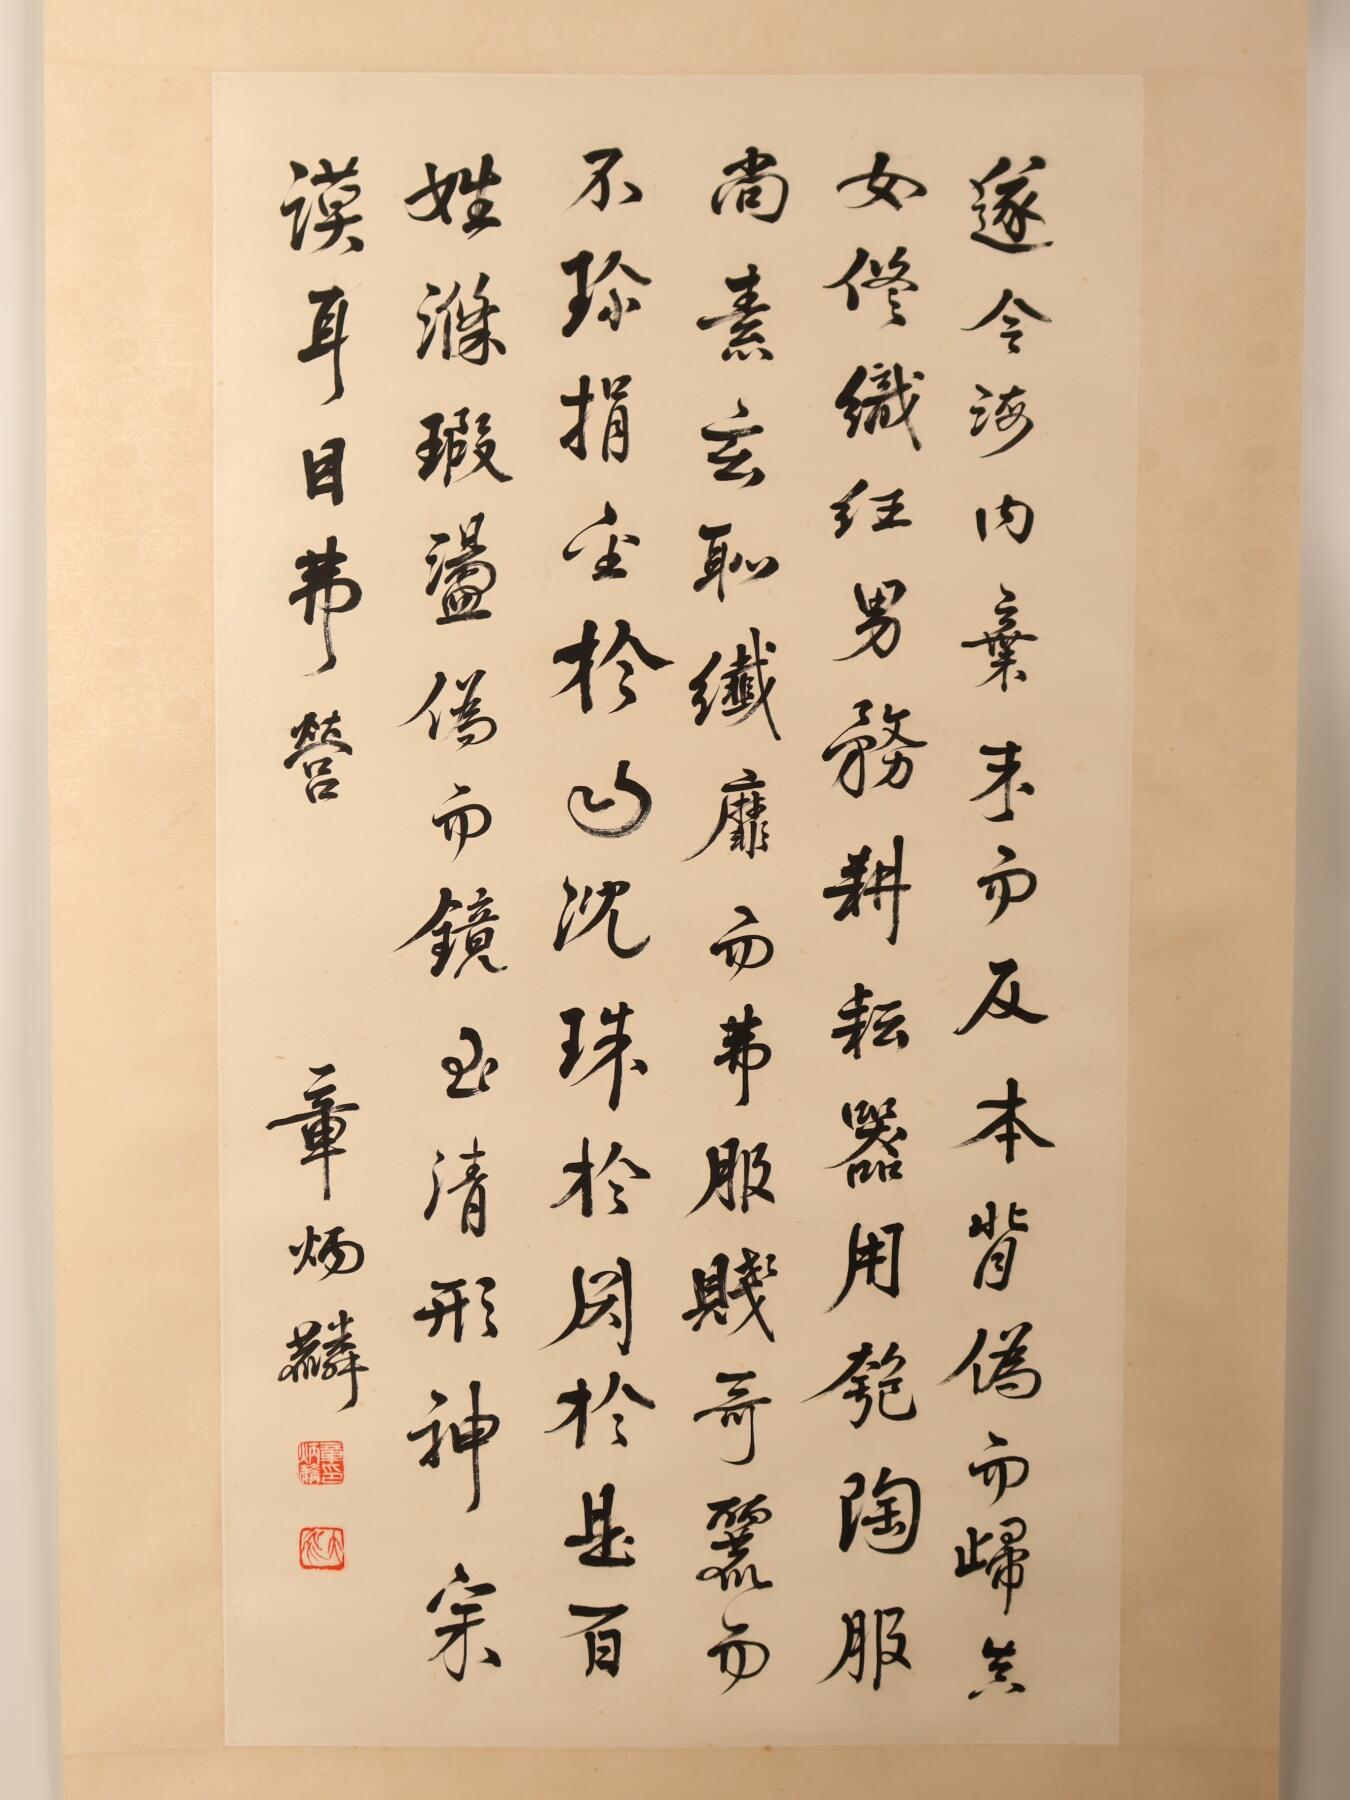 遂令海内棄末而反本背偽而歸真
女修織紝男務耕耘器用匏陶服
尚素玄恥纖靡而弗服賤奇麗而
不珍捐金於山沈珠於淵於是百
姓滌瑕盪偽而鏡至清形神寂
謨耳目弗營
章炳麟
章炳麟印
太炎